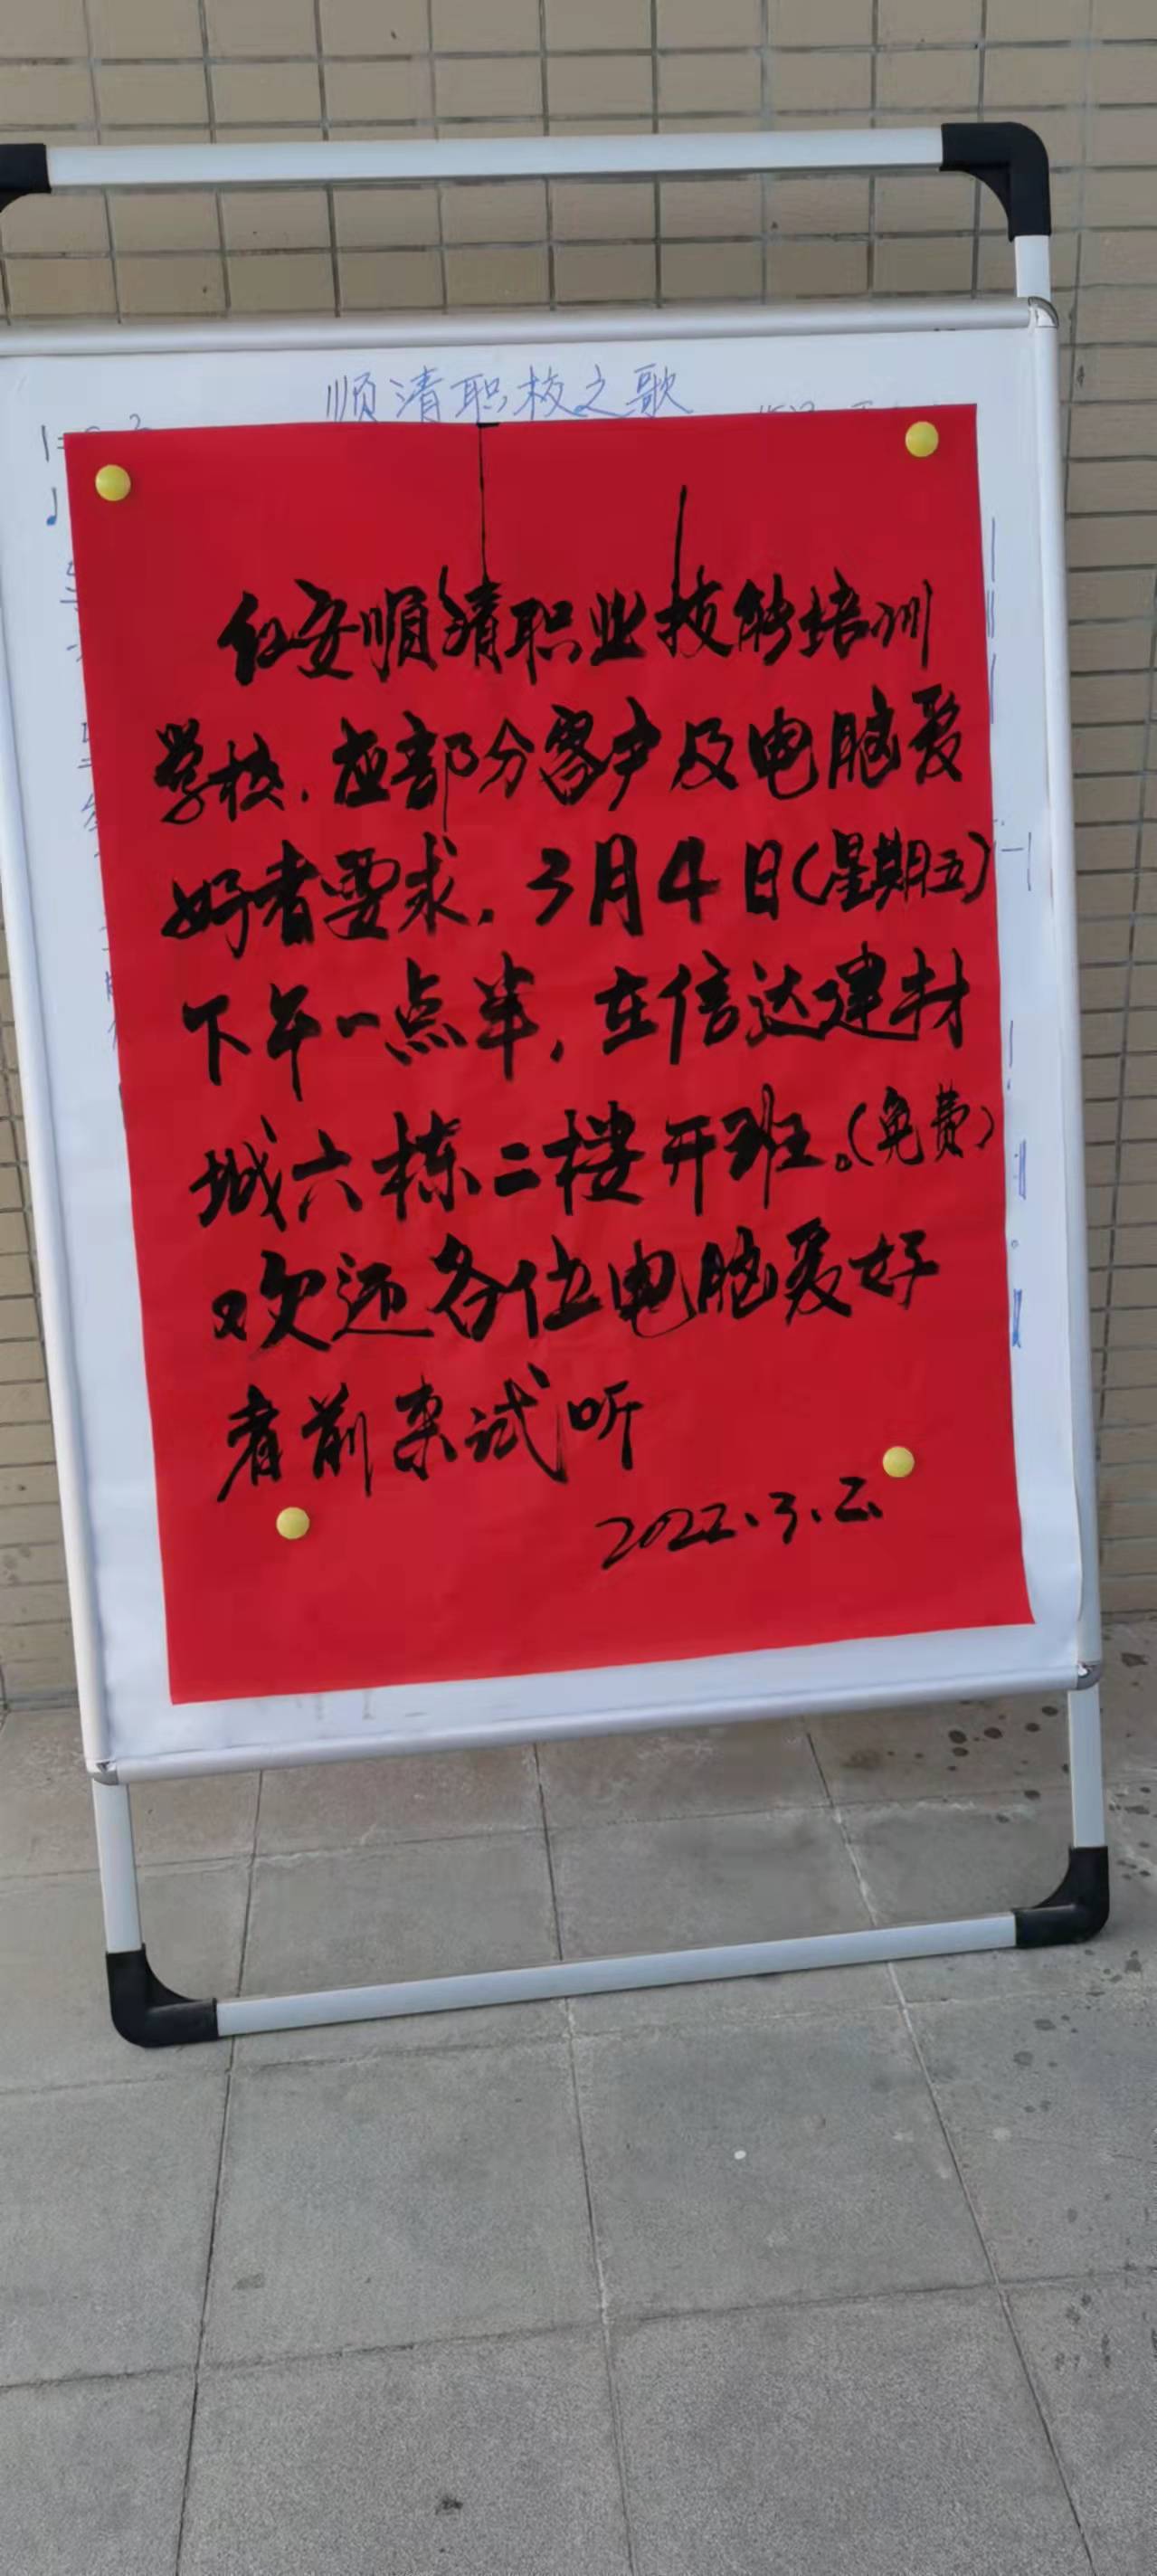 顺清职校之歌
红安顺清职业技能培训
学校.应部分客户及电脑爱
好者要求.3月4日(星期五)
下午一点半,在信达建材
城六栋二楼开班。(免费)
欢迎各位电脑爱好
者前来试听
2022.3.2.